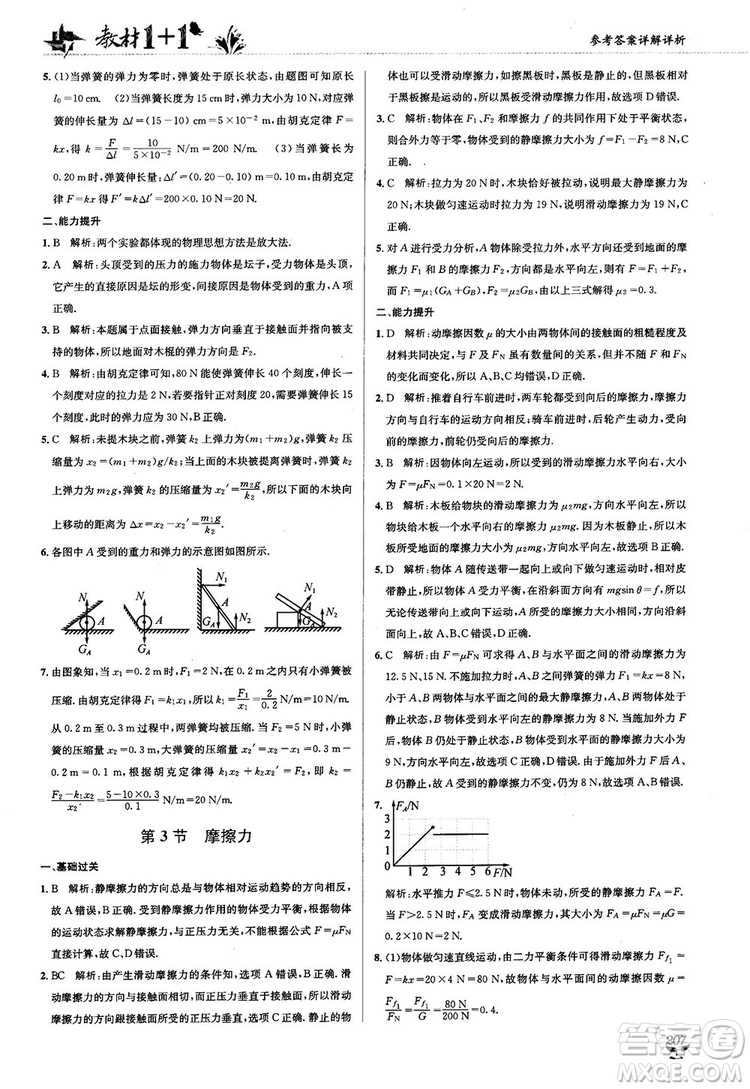 教材1+1
参考答案详解详析
5. (1)当弹簧的弹力为零时,弹簧处于原长状态,由题图可知原长
l₀=10 cm. (2)当弹簧长度为 15 cm 时,弹力大小为 10 N,对应弹
簧的伸长量为 Δl=(15-10) cm=5×10⁻² m,由胡克定律F=kx,
得 k=F/Δl=10/(5×10⁻²) N/m=200 N/m. (3)当弹簧长为
0.20 m时,弹簧伸长量 Δl′=(0.20-0.10) m=0.10 m,由胡克定
律 F=kx 得 F′=kΔl′=200×0.10 N=20 N.
二、能力提升
1. B 解析:两个实验都体现的物理思想方法是放大法.
2. A 解析:头顶受到的压力的施力物体是坛子,受力物体是头顶,
它产生的直接原因是坛的形变,间接原因是坛受到的重力,A 项
正确.
3. B 解析:本题属于点面接触,弹力方向垂直于接触面并指向被支
持的物体,所以地面对木棍的弹力是 F₂.
4. B 解析:由胡克定律可知,80 N 能使弹簧伸长 40 个刻度,伸长一
个刻度对应的拉力是 2 N,若要指针正对刻度 20,需要弹簧伸长
15 个刻度,此时的弹力应为 30 N,B 正确.
5. C 解析:未提木块之前,弹簧 k₂ 上弹力为(m₁+m₂)g,弹簧 k₂ 压
缩量为 x₂=(m₁+m₂)g/k₂;当上面的木块离开上面弹簧时,弹簧 k₂ 上
弹力为 m₂g,弹簧 k₂ 的压缩量为 x₂′=m₂g/k₂,所以下面的木块向
上移动的距离为 Δx=x₂-x₂′=m₁g/k₂.
6. 各图中 A 受到的重力和弹力的示意图如图所示.
N A G_A N A G_A N₁ A G_A N₂ N₁ A G_A N₂
7. 由图象知,当 x₁=0.2 m 时,大弹簧被压缩了 0.2 m,而小弹簧没被
压缩. 由胡克定律得 F₁=k₁x₁,所以 k₁=F₁/x₁=2/0.2 N/m=10 N/m.
从 0.2 m 至 0.3 m 过程中,两弹簧均被压缩,大弹簧压缩量为
x₂=0.3 m,小弹簧的压缩量为 x₂′=x₂-x₁=0.3 m-
0.2 m=0.1 m,根据胡克定律得 k₁x₂+k₂x₂′=F₂,即 k₂=
(F₂-k₁x₂)/x₂′=(5-10×0.3)/0.1 N/m=20 N/m.
第 3 节 摩擦力
一、基础过关
1. B 解析:静摩擦力的方向总是与物体相对运动趋势的方向相反,
故 A 错误,B 正确. 受到静摩擦力作用的物体受力平衡,但物体
的运动状态需求讲解参照系,静摩擦力与压力无关,不能由F=μF_N
直接计算. 故 C、D 错误.
2. BC 解析:由产生滑动摩擦力的条件知,选项 A 错误,B 正确. 滑
动摩擦力的方向与接触面相切,而弹力的方向与接触面垂直,因
而滑动摩擦力的方向跟接触面所受压力的方向垂直,C 正确. 静止的物
体也可以受滑动摩擦力,如擦黑板时,黑板是静止的,但黑板擦对
于黑板擦是滑动的,所以受到滑动摩擦力作用,故选项 D 错误.
3. C 解析:物体在 F₁、F₂ 和摩擦力 f 的共同作用下处于平衡状态,
合外力等于零,物体受到的静摩擦力大小为 f=F₁-F₂=8 N,C
正确.
4. C 解析:拉力为 20 N 时,木块恰好被拉动,说明最大静摩擦力为
20 N;木块做匀速运动时拉力为 19 N,说明滑动摩擦力为 19 N,
C 正确.
5. 对 A 进行受力分析,A 物体除受拉力外,水平方向还受到地面的摩
擦力 F₁ 和 B 的摩擦力 F₂,方向都是水平向左,其中 F=F₁+
F₂,F₁=μ₁(G_A+G_B),F₂=μ₂G_B,由以上三式解得μ₂=0.3.
二、能力提升
1. D 解析:动摩擦因数 μ 的大小由两物体间的接触面的粗糙程度及
材料共同决定,与 F、F_N 虽有数量间的关系,但不随 F 和 F_N
的变化而变化,所以 A、B、C 均错误,D 正确.
2. D 解析:推着自行车前行时,两车轮都要受到向后的摩擦力,即
方向与自行车的运动方向相反;骑车前进时,后轮产生动力,受力
向前,前轮仍受到向后的摩擦力.
3. B 解析:因物体向左运动,受到的滑动摩擦力方向向右,大小
为 f=μF_N=0.1×20 N=2 N.
4. B 解析:木板给物块的滑动摩擦力为μ₂mg,方向水平向左,所以
物块给木板一个水平向右的摩擦力为 μ₂mg,所以木板受到地面的摩
擦力大小为 μ₂mg,方向水平向左. 故 B 正确.
5. D 解析:物体 A 随传送带一起向上或向下做匀速运动,相对皮
带静止,所以物体 A 受力平衡,在沿斜面方向有 mgsin θ=f,所以
无论传送带向上或向下运动,A 所受的摩擦力大小相同,方向沿斜
面向上. A、B、C 错误,D 正确.
6. C 解析:由 f=μF_N 可求得 A、B 与水平面之间的滑动摩擦力为
12.5 N、15 N. 拉力 F 作用前,弹簧的弹力为 F_弹=kx=8 N,
小于 A、B 两物体与水平面之间的最大静摩擦力,A、B 物体静
止,A 物体受到水平向右的静摩擦力为 8 N,施加水平拉力 F
后,物体 B 仍处于静止,B 受到水平向左的静摩擦力大小为
9 N,所以 B 错误,C 正确. A 物体受到的弹力在施加外力 F 后,A
受的静摩擦力不变,仍为 8 N,A、D 错误.
7. F_A/N 3 2 1 0 2 4 6 8 10 F/N
解析:水平推力 F≤2.5 N 时,物体未动,所受静摩擦力 F_A=F.
当 F>2.5 N 时,F_A 变成滑动摩擦力,大小为 F_A=μF_N=
0.2×10 N=2 N.
8. (1)物体做匀速直线运动,由二力平衡条件可得滑动摩擦力 F_f1=
F₁=kx₁=20×4 N=80 N,故物体与水平面间的动摩擦因数 μ=
F_f1/F_N=F_f1/G=80 N/200 N=0.4.
207
MXQE.COM